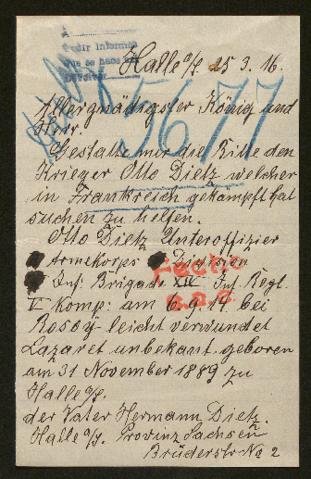 Pedir informes
que se haga
Halle a/S. 25.3.16.
5677
Allergnädigster König und
Herr.
Gestatte mir die Bitte den
Krieger Otto Dietz welcher
in Frankreich gekämpft hat
suchen zu helfen.
Otto Dietz Unteroffizier
Armekorps Division
Inf. Brigade XIV Inf. Regt.
V Komp: am 6.9.14. bei
Rosoy leicht verwundet
Lazaret unbekant. geboren
am 31 November 1889 zu
Halle a/S.
der Vater Hermann Dietz.
Halle a/S. Provinz Sachsen
Brüderstr No 2